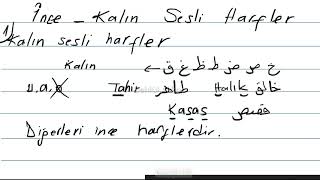 İnce - Kalın Sesli Harfler
1) Kalın sesli harfler
Kalın ← خ ص ض ط ظ غ ق
u.a. Tahir طاهر Halık خالق
Kasas قصص
Diğerleri ince harflerdir.